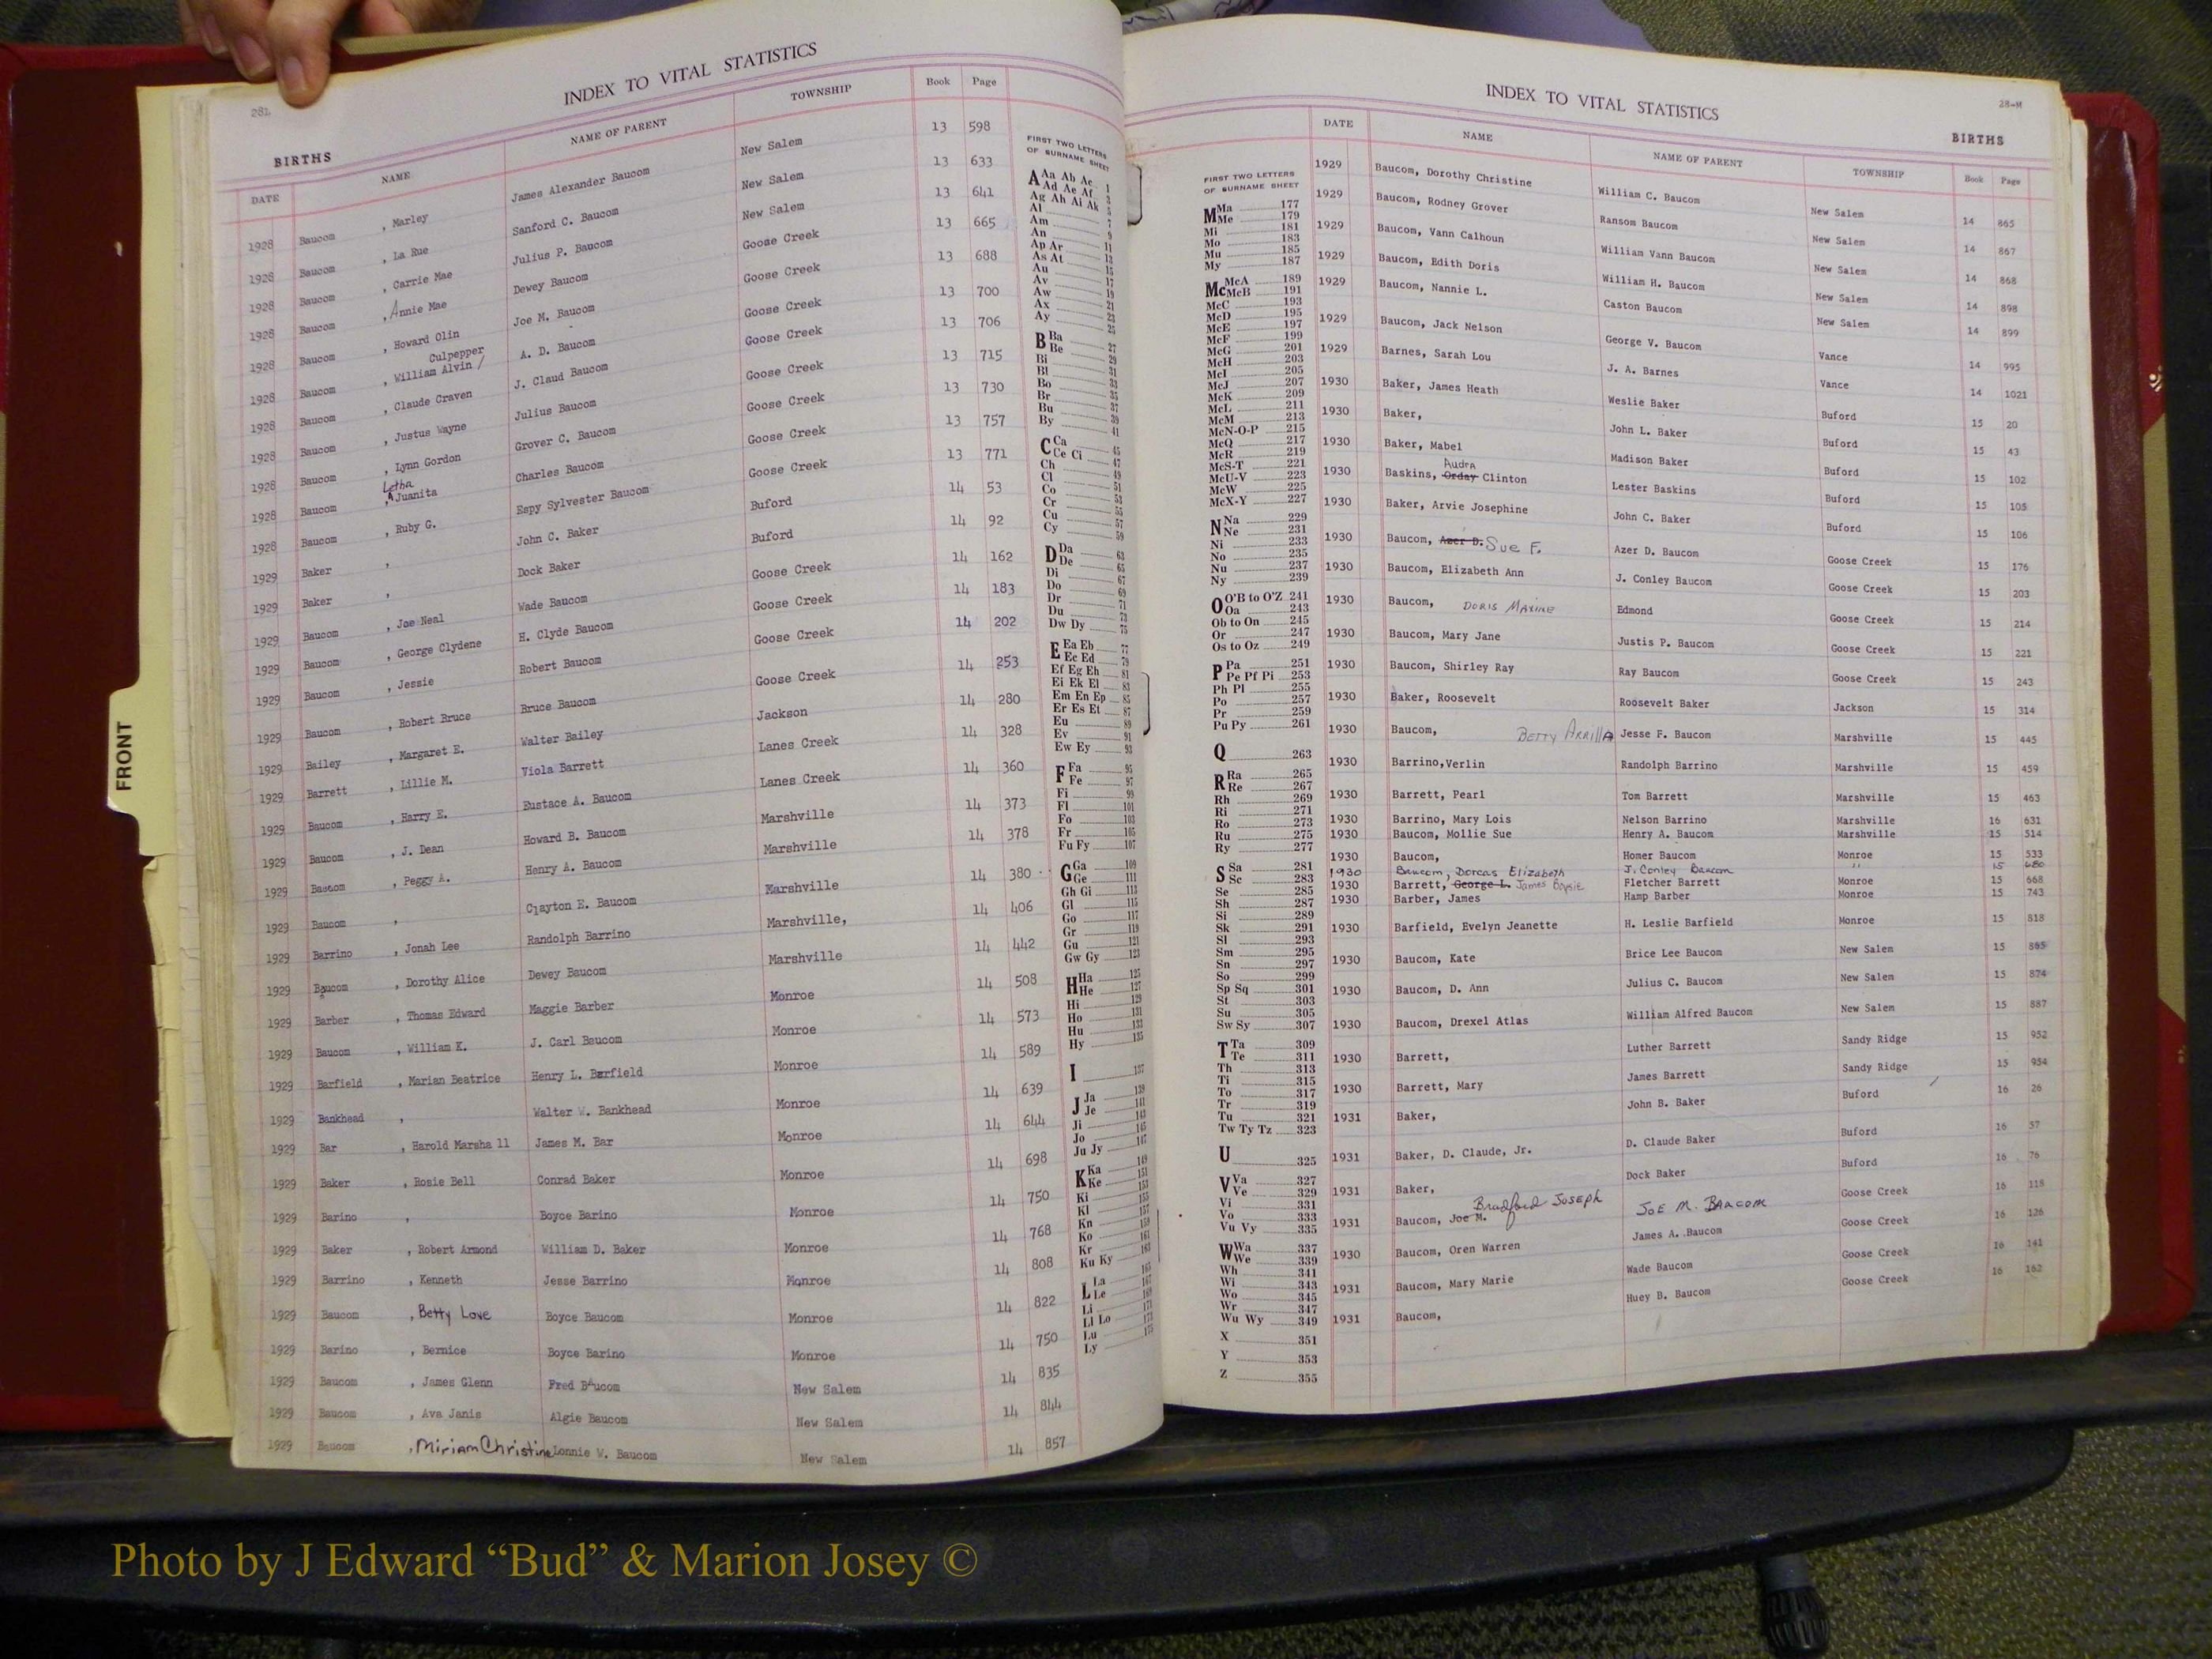 28L
INDEX TO VITAL STATISTICS
BIRTHS
DATE NAME NAME OF PARENT TOWNSHIP Book Page
1928 Baucom , Marley James Alexander Baucom New Salem 13 598
1928 Baucom , La Rue Sanford C. Baucom New Salem 13 633
1928 Baucom , Carrie Mae Julius P. Baucom New Salem 13 641
1928 Baucom , Annie Mae Dewey Baucom Goose Creek 13 665
1928 Baucom , Howard Olin Joe M. Baucom Goose Creek 13 688
Culpepper
1928 Baucom , William Alvin / A. D. Baucom Goose Creek 13 700
1928 Baucom , Claude Craven J. Claud Baucom Goose Creek 13 706
1928 Baucom , Justus Wayne Julius Baucom Goose Creek 13 715
1928 Baucom , Lynn Gordon Grover C. Baucom Goose Creek 13 730
Letha
1928 Baucom , Juanita Charles Baucom Goose Creek 13 757
1928 Baucom , Ruby G. Espy Sylvester Baucom Goose Creek 13 771
1929 Baker , John C. Baker Buford 14 53
1929 Baker , Dock Baker Buford 14 92
1929 Baucom , Joe Neal Wade Baucom Goose Creek 14 162
1929 Baucom , George Clydene H. Clyde Baucom Goose Creek 14 183
1929 Baucom , Jessie Robert Baucom Goose Creek 14 202
1929 Baucom , Robert Bruce Bruce Baucom Goose Creek 14 253
1929 Bailey , Margaret E. Walter Bailey Jackson 14 280
1929 Barrett , Lillie M. Viola Barrett Lanes Creek 14 328
1929 Baucom , Harry E. Eustace A. Baucom Lanes Creek 14 360
1929 Baucom , J. Dean Howard B. Baucom Marshville 14 373
1929 Baucom , Peggy A. Henry A. Baucom Marshville 14 378
1929 Baucom , Clayton E. Baucom Marshville 14 380
1929 Barrino , Jonah Lee Randolph Barrino Marshville, 14 406
1929 Baucom , Dorothy Alice Dewey Baucom Marshville 14 442
1929 Barber , Thomas Edward Maggie Barber Monroe 14 508
1929 Baucom , William K. J. Carl Baucom Monroe 14 573
1929 Barfield , Marian Beatrice Henry L. Barfield Monroe 14 589
1929 Bankhead , Walter W. Bankhead Monroe 14 639
1929 Bar , Harold Marsha ll James M. Bar Monroe 14 644
1929 Baker , Rosie Bell Conrad Baker Monroe 14 698
1929 Barino , Boyce Barino Monroe 14 750
1929 Baker , Robert Armond William D. Baker Monroe 14 768
1929 Barrino , Kenneth Jesse Barrino Monroe 14 808
1929 Baucom , Betty Love Boyce Baucom Monroe 14 822
1929 Barino , Bernice Boyce Barino Monroe 14 750
1929 Baucom , James Glenn Fred Baucom New Salem 14 835
1929 Baucom , Ava Janis Algie Baucom New Salem 14 844
1929 Baucom , Miriam Christine Lonnie W. Baucom New Salem 14 857
FIRST TWO LETTERS
OF SURNAME SHEET
A Aa Ab Ac 1
Ad Ae Af 3
Ag Ah Ai Ak 5
Al 7
Am 9
An 11
Ap Ar 13
As At 15
Au 17
Av 19
Aw 21
Ax 23
Ay 25
B Ba 27
Be 29
Bi 31
Bl 33
Bo 35
Br 37
Bu 39
By 41
C Ca 45
Ce Ci 47
Ch 49
Cl 51
Co 53
Cr 55
Cu 57
Cy 59
D Da 63
De 65
Di 67
Do 69
Dr 71
Du 73
Dw Dy 75
E Ea Eb 77
Ec Ed 79
Ef Eg Eh 81
Ei Ek El 83
Em En Ep 85
Er Es Et 87
Eu 89
Ev 91
Ew Ey 93
F Fa 95
Fe 97
Fi 99
Fl 101
Fo 103
Fr 105
Fu Fy 107
G Ga 109
Ge 111
Gh Gi 113
Gl 115
Go 117
Gr 119
Gu 121
Gw Gy 123
H Ha 125
He 127
Hi 129
Ho 131
Hu 133
Hy 135
I 137
J Ja 139
Je 141
Ji 143
Jo 145
Ju Jy 147
K Ka 149
Ke 151
Ki 153
Kl 155
Kn 157
Ko 159
Kr 161
Ku Ky 163
L La 165
Le 167
Li 169
Ll Lo 171
Lu 173
Ly 175
FRONT
INDEX TO VITAL STATISTICS
28-M
BIRTHS
FIRST TWO LETTERS
OF SURNAME SHEET
M Ma 177
Me 179
Mi 181
Mo 183
Mu 185
My 187
Mc McA 189
McB 191
McC 193
McD 195
McE 197
McF 199
McG 201
McH 203
McI 205
McJ 207
McK 209
McL 211
McM 213
McN-O-P 215
McQ 217
McR 219
McS-T 221
McU-V 223
McW 225
McX-Y 227
N Na 229
Ne 231
Ni 233
No 235
Nu 237
Ny 239
O O'B to O'Z 241
Oa 243
Ob to On 245
Or 247
Os to Oz 249
P Pa 251
Pe Pf Pi 253
Ph Pl 255
Po 257
Pr 259
Pu Py 261
Q 263
R Ra 265
Re 267
Rh 269
Ri 271
Ro 273
Ru 275
Ry 277
S Sa 281
Sc 283
Se 285
Sh 287
Si 289
Sk 291
Sl 293
Sm 295
Sn 297
So 299
Sp Sq 301
St 303
Su 305
Sw Sy 307
T Ta 309
Te 311
Th 313
Ti 315
To 317
Tr 319
Tu 321
Tw Ty Tz 323
U 325
V Va 327
Ve 329
Vi 331
Vo 333
Vu Vy 335
W Wa 337
We 339
Wh 341
Wi 343
Wo 345
Wr 347
Wu Wy 349
X 351
Y 353
Z 355
DATE NAME NAME OF PARENT TOWNSHIP Book Page
1929 Baucom, Dorothy Christine William C. Baucom New Salem 14 865
1929 Baucom, Rodney Grover Ransom Baucom New Salem 14 867
1929 Baucom, Vann Calhoun William Vann Baucom New Salem 14 868
1929 Baucom, Edith Doris William H. Baucom New Salem 14 898
1929 Baucom, Nannie L. Caston Baucom New Salem 14 899
1929 Baucom, Jack Nelson George V. Baucom Vance 14 995
1929 Barnes, Sarah Lou J. A. Barnes Vance 14 1021
1930 Baker, James Heath Weslie Baker Buford 15 20
1930 Baker, John L. Baker Buford 15 43
1930 Baker, Mabel Madison Baker Buford 15 102
Audra
1930 Baskins, Orday Clinton Lester Baskins Buford 15 105
1930 Baker, Arvie Josephine John C. Baker Buford 15 106
1930 Baucom, Azer D. Sue F. Azer D. Baucom Goose Creek 15 176
1930 Baucom, Elizabeth Ann J. Conley Baucom Goose Creek 15 203
1930 Baucom, DORIS MAXINE Edmond Goose Creek 15 214
1930 Baucom, Mary Jane Justis P. Baucom Goose Creek 15 221
1930 Baucom, Shirley Ray Ray Baucom Goose Creek 15 243
1930 Baker, Roosevelt Roosevelt Baker Jackson 15 314
1930 Baucom, BETTY ARRILLA Jesse F. Baucom Marshville 15 445
1930 Barrino,Verlin Randolph Barrino Marshville 15 459
1930 Barrett, Pearl Tom Barrett Marshville 15 463
1930 Barrino, Mary Lois Nelson Barrino Marshville 16 631
1930 Baucom, Mollie Sue Henry A. Baucom Marshville 15 514
1930 Baucom, Homer Baucom Monroe 15 533
1930 Baucom, Dorcas Elizabeth J. Conley Baucom " 15 680
1930 Barrett, George L. James Boysie Fletcher Barrett Monroe 15 668
1930 Barber, James Hamp Barber Monroe 15 743
1930 Barfield, Evelyn Jeanette H. Leslie Barfield Monroe 15 818
1930 Baucom, Kate Brice Lee Baucom New Salem 15 865
1930 Baucom, D. Ann Julius C. Baucom New Salem 15 874
1930 Baucom, Drexel Atlas William Alfred Baucom New Salem 15 887
1930 Barrett, Luther Barrett Sandy Ridge 15 952
1930 Barrett, Mary James Barrett Sandy Ridge 15 954
1931 Baker, John B. Baker Buford 16 26
1931 Baker, D. Claude, Jr. D. Claude Baker Buford 16 57
1931 Baker, Dock Baker Buford 16 76
Bradford JOSEPH
1931 Baucom, Joe M. JOE M. BAUCOM Goose Creek 16 118
1930 Baucom, Oren Warren James A. Baucom Goose Creek 16 126
1931 Baucom, Mary Marie Wade Baucom Goose Creek 16 141
1931 Baucom, Huey B. Baucom Goose Creek 16 162
Photo by J Edward “Bud” & Marion Josey ©